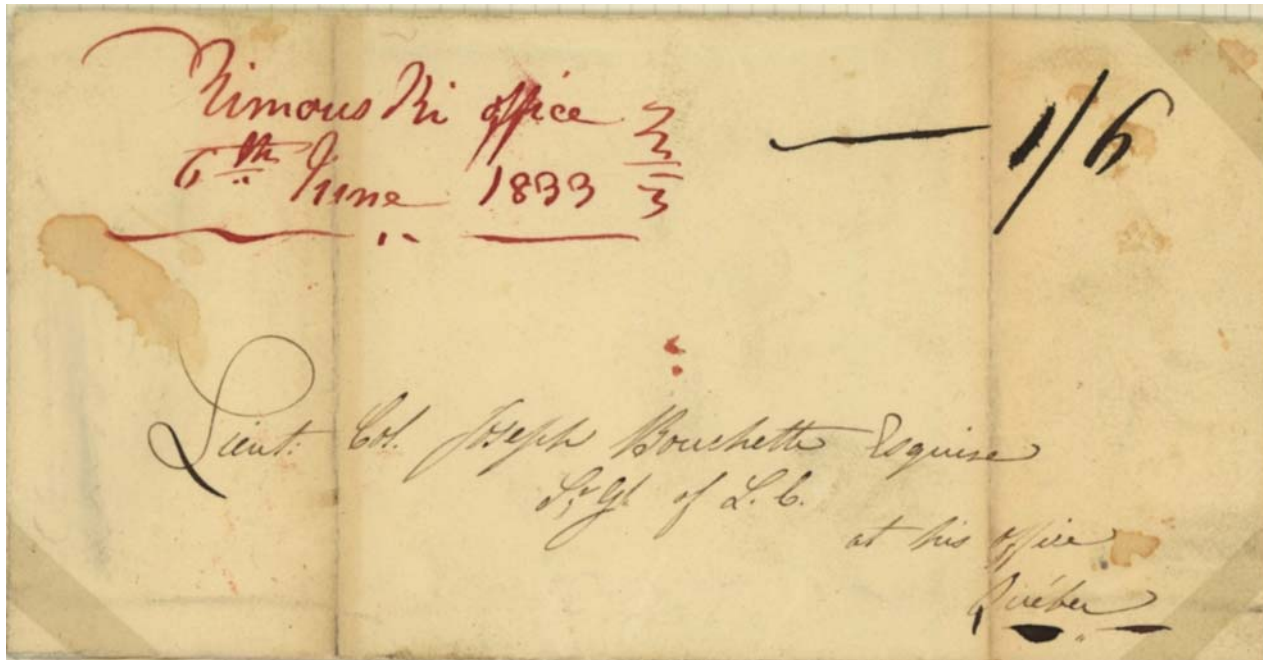 Rimous Ki office
6th June 1833
— 1/6
Lieut. Col. Joseph Bouchette Esquire
Sr. Gl. of L. C.
at his office
Quebec